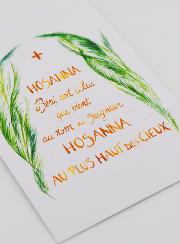 HOSANNA
Béni soit celui
qui vient
au nom du Seigneur
HOSANNA
AU PLUS HAUT DES CIEUX